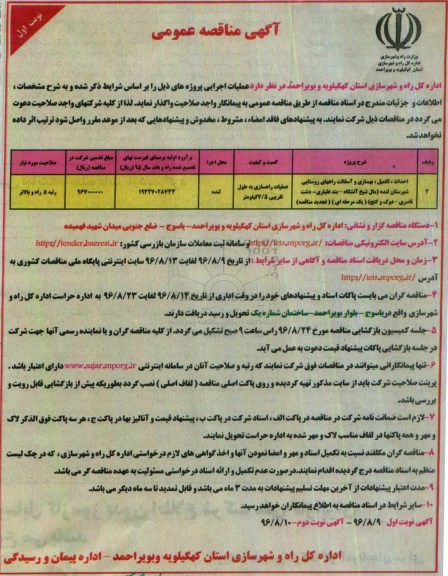 نوبت اول
آگهی مناقصه عمومی
وزارت راه و شهرسازی
اداره کل راه و شهرسازی
استان کهگیلویه و بویراحمد
اداره کل راه و شهرسازی استان کهگیلویه و بویراحمد در نظر دارد عملیات اجرایی پروژه های ذیل را بر اساس شرایط ذکر شده و به شرح مشخصات ،
اطلاعات و جزئیات مندرج در اسناد مناقصه از طریق مناقصه عمومی به پیمانکار واجد صلاحیت واگذار نماید. لذا از کلیه شرکتهای واجد صلاحیت دعوت
می گردد در مناقصات ذیل شرکت نمایند. به پیشنهادهای فاقد امضاء ، مشروط ، مخدوش و پیشنهادهایی که بعد از موعد مقرر واصل شود ترتیب اثر داده
نخواهد شد.
ردیف شرح پروژه کمیت و کیفیت محل اجرا برآورد اولیه برمبنای فهرست بهای تجمیع شده راه و باند سال ۹۵ (ریال) مبلغ تضمین شرکت در مناقصه (ریال) صلاحیت مورد نیاز
۲ احداث ، تکمیل ، بهسازی و آسفالت راههای روستایی شهرستان گنده (مال شیخ آتشگاه - بند علیاری - دشت نادری - خوگ و گنج) ( یک مرحله ای ) ( تجدید مناقصه) عملیات راهسازی به طول تقریبی ۷/۵ کیلومتر رتبه ۵ راه و بالاتر
۱-دستگاه مناقصه گزار و نشانی: اداره کل راه و شهرسازی استان کهگیلویه و بویراحمد- یاسوج - ضلع جنوبی میدان شهید فهمیده
۲-آدرس سایت الکترونیکی مناقصات: http://iets.mporg.ir/ و سامانه ثبت معاملات سازمان بازرسی کشور: http://tender.bazresi.ir
۳-زمان و محل دریافت اسناد مناقصه و آگاهی از سایر شرایط : از تاریخ ۹۶/۸/۹ لغایت ۹۶/۸/۱۳ سایت اینترنتی پایگاه ملی مناقصات کشوری به
آدرس http://iets.mporg.ir/
۴-مناقصه گران می بایست پاکات اسناد و پیشنهادهای خود را در وقت اداری از تاریخ ۹۶/۸/۱۴ لغایت ۹۶/۸/۲۳ به اداره حراست اداره کل راه و
شهرسازی واقع در یاسوج - بلوار بویراحمد-ساختمان شماره یک تحویل و رسید دریافت دارند.
۵-جلسه کمیسیون بازگشایی مناقصه مورخ ۹۶/۸/۲۴ راس ساعت ۹ صبح تشکیل می گردد. از کلیه مناقصه گران و یا نماینده رسمی آنها جهت شرکت
در جلسه بازگشایی پاکات پیشنهاد قیمت دعوت به عمل می آید.
۶-تنها پیمانکارانی میتوانند در مناقصات فوق شرکت نمایند که رتبه و صلاحیت آنان در سامانه اینترنتی www.sajar.mporg.ir دارای اعتبار باشد .
پرینت صلاحیت شرکت باید از سایت مذکور تهیه گردیده و روی پاکت اصلی مناقصه ( لفاف اصلی ) نصب گردد بطوریکه پیش از بازگشایی قابل رویت و
بررسی باشد.
۷-لازم است ضمانت نامه شرکت در مناقصه در پاکت الف ، اسناد شرکت در پاکت ب ، پیشنهاد قیمت و آنالیز بها در پاکت ج ، هر سه پاکت فوق الذکر لاک
و مهر و همه پاکتها در لفاف مناسب لاک و مهر شده به اداره حراست تحویل نمایند.
۸-مناقصه گران مکلفند نسبت به تکمیل اسناد و مهر و امضا نمودن آنها و اخذ گواهی های لازم درخواستی اداره کل راه و شهرسازی ، که در چک لیست
منظم به اسناد مناقصه درج گردیده اقدام نمایند. در صورت عدم تکمیل و ارائه اسناد درخواستی مسئولیت به عهده مناقصه گر می باشد.
۹-مدت اعتبار پیشنهادات از آخرین مهلت تسلیم پیشنهادات به مدت ۳ ماه می باشد و قابل تمدید تا سه ماه دیگر می باشد.
۱۰-سایر شرایط در اسناد مناقصه به اطلاع پیمانکاران خواهد رسید.
آگهی نوبت اول ۹۶/۸/۹ - آگهی نوبت دوم ۹۶/۸/۱۰
اداره کل راه و شهرسازی استان کهگیلویه وبویراحمد - اداره پیمان و رسیدگی